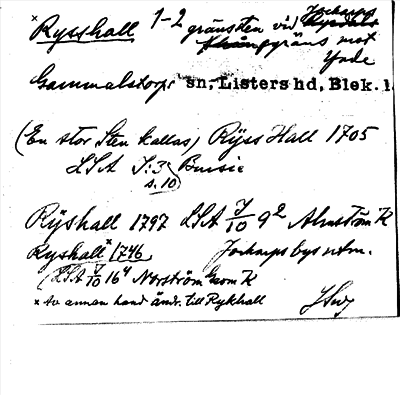 × Rysshall 1-2 gränsten vid Jockarps
gräns mot
Ysde
Gammalstorps sn, Listers hd, Blek. l.
(En stor Sten kallas) Rÿss Hall 1705
LSA S:3 Bursie
s. 10)
Rÿshall 1797 LSA J/10 9² Almström K
Ryshall× 1746, Jockarps bys utm.
(LSA J/10 16⁴ Norström Geom K
× Av annan hand ändr. till Rykhall